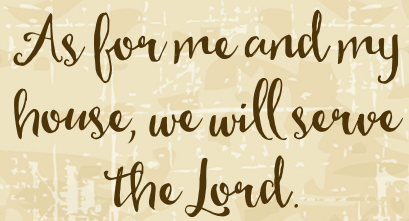 As for me and my
house, we will serve
the Lord.